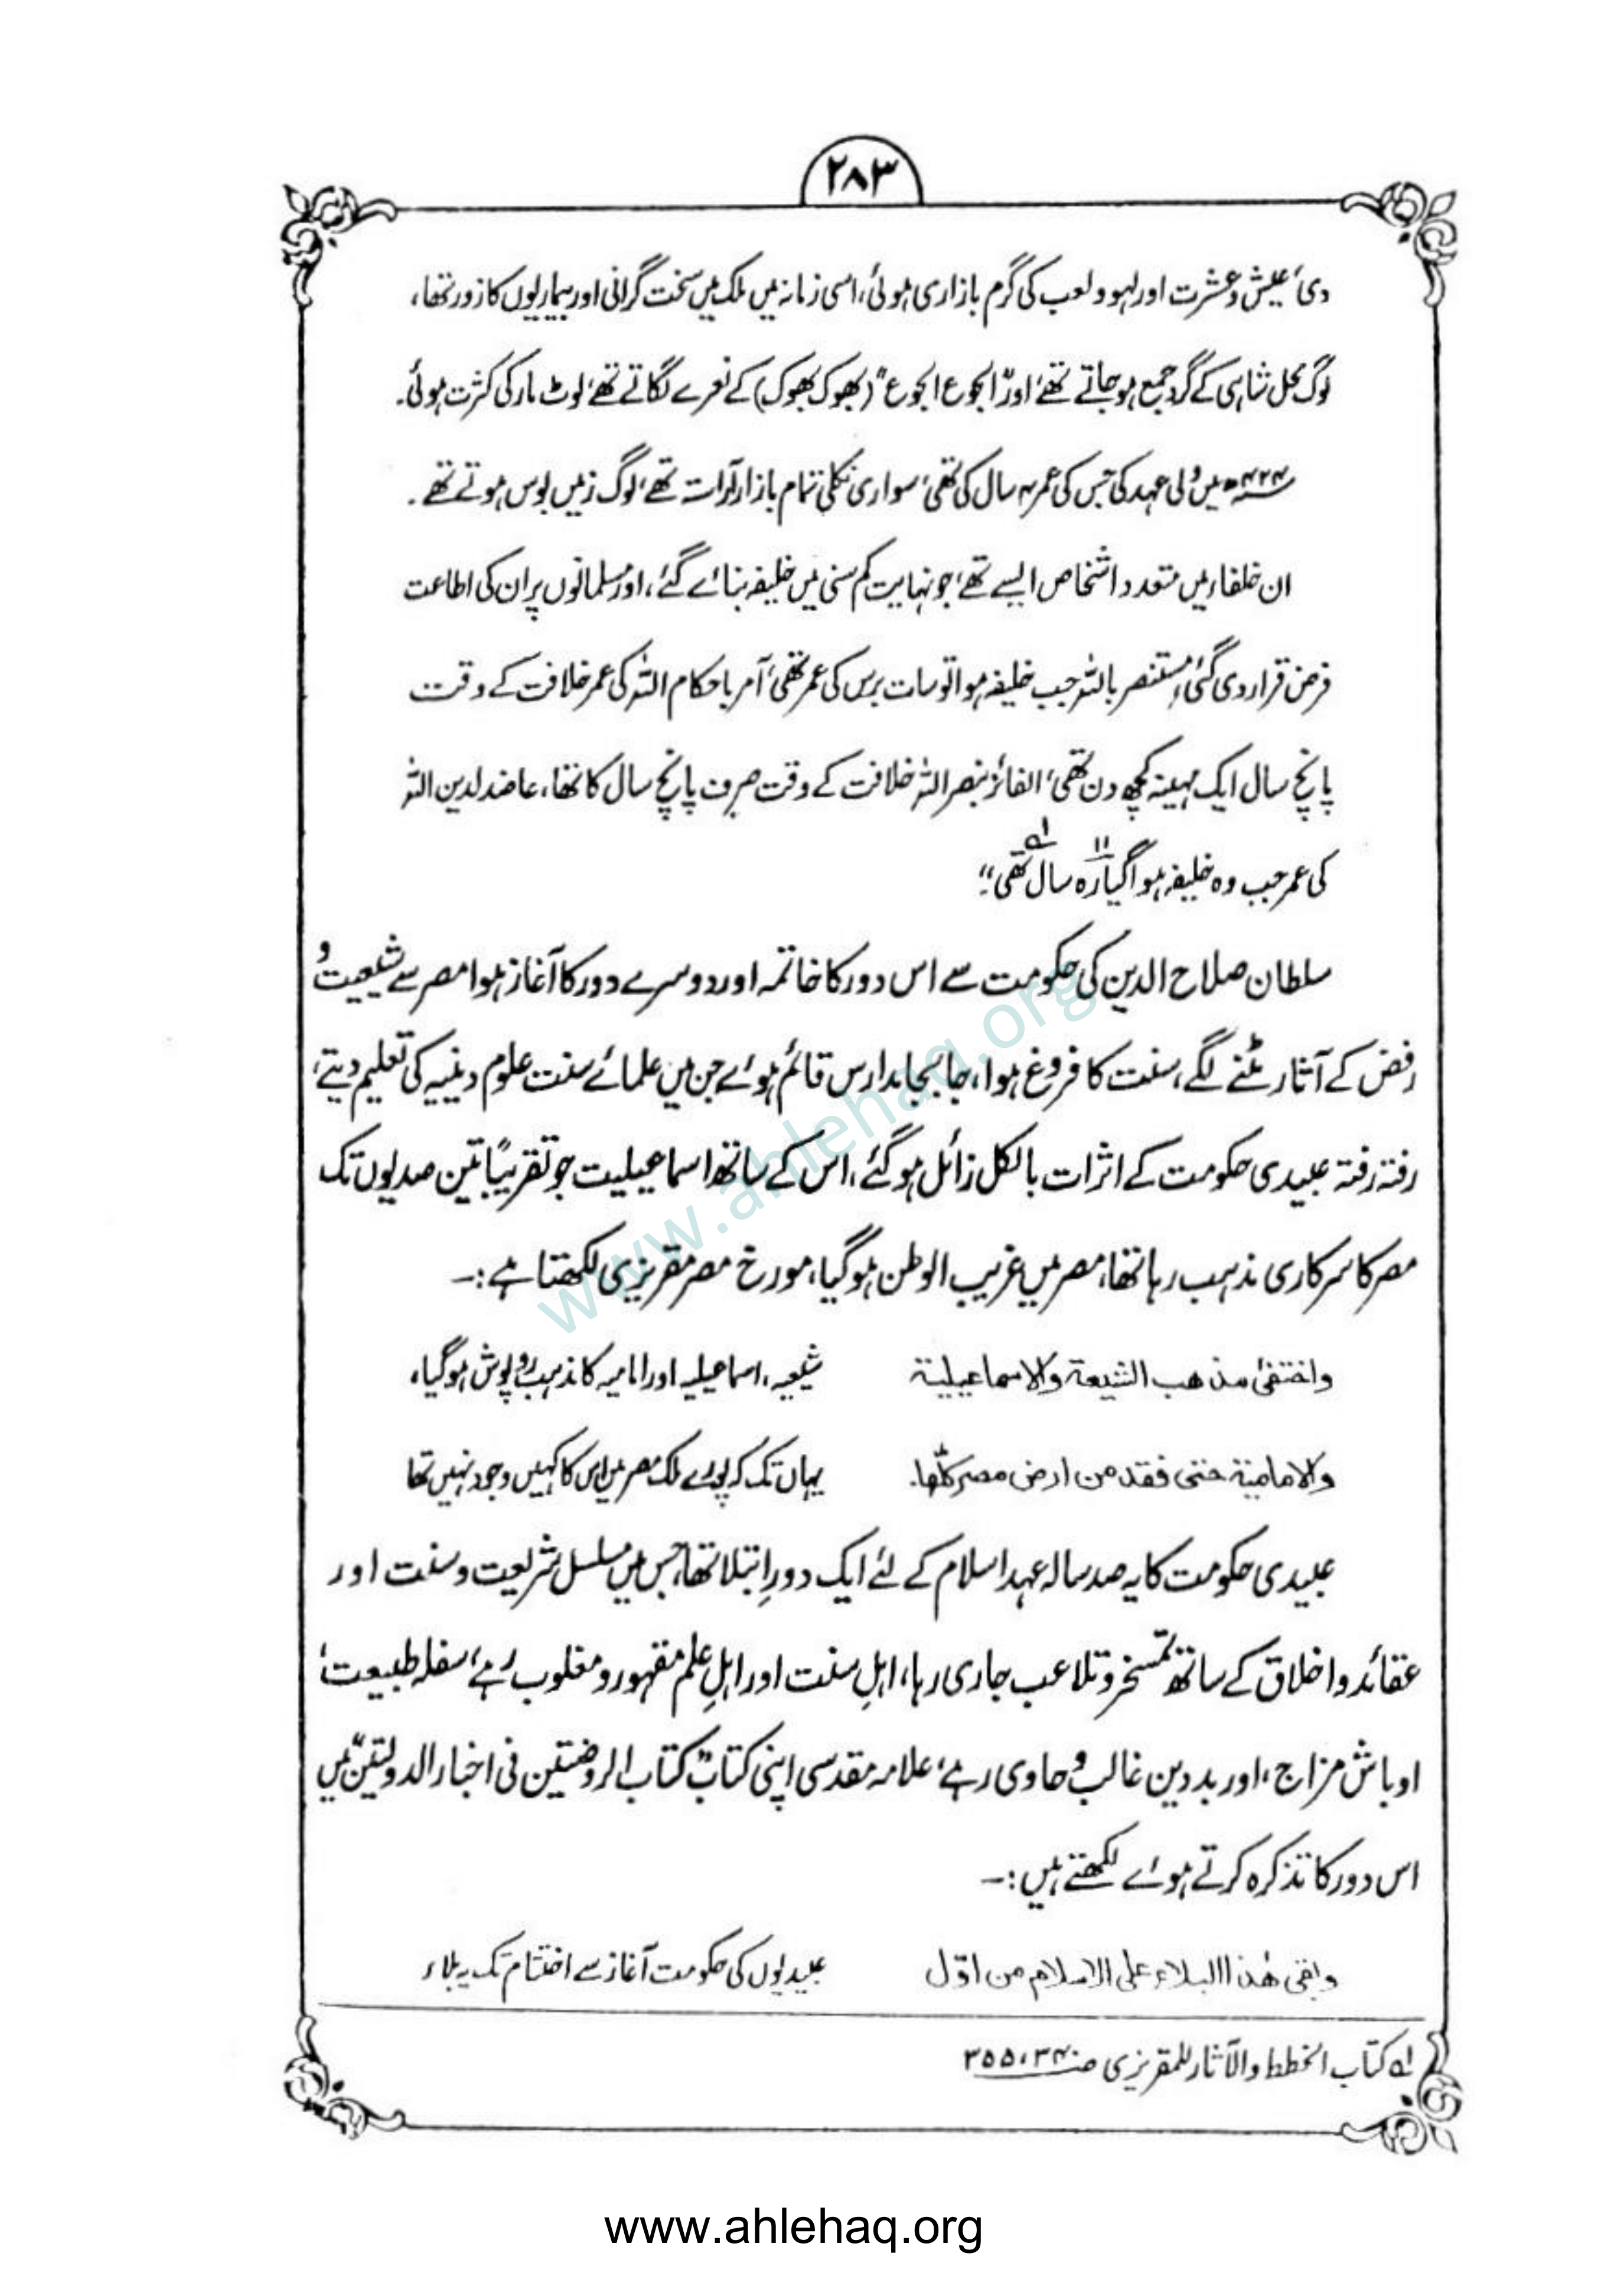 ۲۸۳
دی، عیش و عشرت اور لہو و لعب کی گرم بازاری ہوئی، اسی زمانہ میں ملک میں سخت گرانی اور بیماریوں کا زور تھا،
لوگ محل شاہی کے گرد جمع ہو جاتے تھے، اور "الجوع الجوع" (بھوک بھوک) کے نعرے لگاتے تھے، لوٹ مار کی کثرت ہوئی۔
۴۲۴ھ میں ولی عہد کی جس کی عمر ۴ سال کی تھی، سواری نکلی تمام بازار آراستہ تھے، لوگ زمیں بوس ہوتے تھے۔
ان خلفاء میں متعدد اشخاص ایسے تھے، جو نہایت کم سنی میں خلیفہ بنائے گئے، اور مسلمانوں پر ان کی اطاعت
فرض قرار دی گئی، مستنصر باللہ جب خلیفہ ہوا تو سات برس کی عمر تھی، آمر باحکام اللہ کی عمر خلافت کے وقت
پانچ سال ایک مہینہ کچھ دن تھی، الفائز بنصر اللہ خلافت کے وقت صرف پانچ سال کا تھا، عاضد لدین اللہ
کی عمر جب وہ خلیفہ ہوا گیارہ ۱۱ سال تھی"؂۱
سلطان صلاح الدین کی حکومت سے اس دور کا خاتمہ اور دوسرے دور کا آغاز ہوا مصر سے شیعیت و
رفض کے آثار مٹنے لگے، سنت کا فروغ ہوا، جا بجا مدارس قائم ہوئے جن میں علمائے سنت علوم دینیہ کی تعلیم دیتے،
رفتہ رفتہ عبیدی حکومت کے اثرات بالکل زائل ہو گئے، اس کے ساتھ اسماعیلیت جو تقریباً تین صدیوں تک
مصر کا سرکاری مذہب رہا تھا، مصر میں غریب الوطن ہو گیا، مورخ مصر مقریزی لکھتا ہے:۔
واختفیٰ مذهب الشیعة والاسماعیلیة شیعہ، اسماعیلیہ اور امامیہ کا مذہب روپوش ہو گیا،
والامامیة حتی فقد من ارض مصر کلّها۔ یہاں تک کہ پورے ملک مصر میں اس کا کہیں وجود نہیں تھا
عبیدی حکومت کا یہ صد سالہ عہد اسلام کے لئے ایک دورِ ابتلا تھا، جس میں مسلسل شریعت و سنت اور
عقائد و اخلاق کے ساتھ تمسخر و تلاعب جاری رہا، اہلِ سنت اور اہلِ علم مقہور و مغلوب رہے، سفلہ طبیعت،
اوباش مزاج، اور بد دین غالب و حاوی رہے، علامہ مقدسی اپنی کتاب "کتاب الروضتین فی اخبار الدولتین" میں
اس دور کا تذکرہ کرتے ہوئے لکھتے ہیں:۔
وبقی هٰذا البلاء علی الاسلام من اوّل عبیدیوں کی حکومت آغاز سے اختتام تک یہ بلاء
؂۱ کتاب الخطط والآثار للمقریزی
www.ahlehaq.org
www.ahlehaq.org